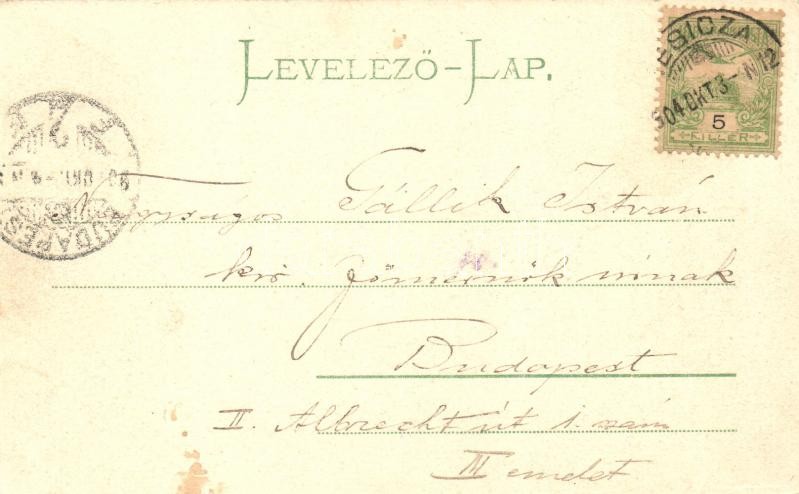 LEVELEZŐ-LAP.
ESICZA
904 OKT. 3 - N12
5
FILLÉR
BUDAPES
Nagyságos Gállik István
kir. főmérnök urnak
Budapest
II. Albrecht út 1. szám
III emelet